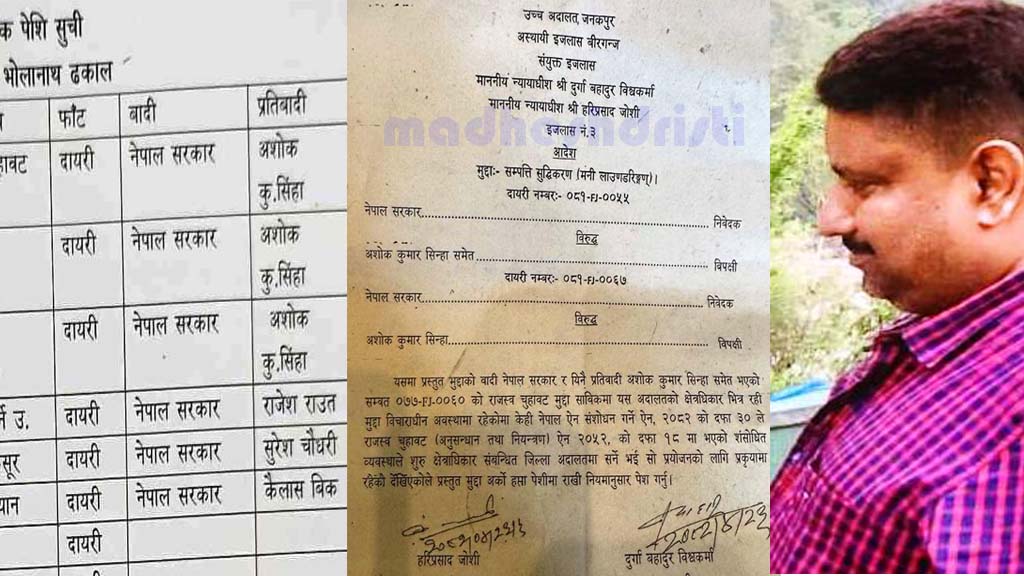 क पेशि सुची
भोलानाथ ढकाल
फाँट वादी प्रतिवादी
दायरी नेपाल सरकार अशोक
कु.सिंहा
दायरी नेपाल सरकार अशोक
कु.सिंहा
दायरी नेपाल सरकार अशोक
कु.सिंहा
उ. दायरी नेपाल सरकार राजेश राउत
दायरी नेपाल सरकार सुरेश चौधरी
दायरी नेपाल सरकार कैलास विक
दायरी
उच्च अदालत, जनकपुर
अस्थायी इजलास बीरगन्ज
संयुक्त इजलास
माननीय न्यायाधीश श्री दुर्गा बहादुर विश्वकर्मा
माननीय न्यायाधीश श्री हरिप्रसाद जोशी
इजलास नं.३
आदेश
मुद्दाः- सम्पत्ति सुद्धिकरण (मनी लाउणडरिङ्गण्)।
दायरी नम्बरः- ०८१-FJ-००५५
नेपाल सरकार.......................................................निवेदक
विरुद्ध
अशोक कुमार सिन्हा समेत.......................................................विपक्षी
दायरी नम्बरः- ०८१-FJ-००६७
नेपाल सरकार.......................................................निवेदक
विरुद्ध
अशोक कुमार सिन्हा.......................................................विपक्षी
यसमा प्रस्तुत मुद्दाको बादी नेपाल सरकार र यिनै प्रतिवादी अशोक कुमार सिन्हा समेत भएको
सम्वत ०७७-FJ-००६० को राजस्व चुहावट मुद्दा साविकमा यस अदालतको क्षेत्रधिकार भित्र रही
मुद्दा विचाराधीन अवस्थामा रहेकोमा केही नेपाल ऐन संशोधन गर्ने ऐन, २०८२ को दफा ३० ले
राजस्व चुहावट (अनुसन्धान तथा नियन्त्रण) ऐन २०५२, को दफा १८ मा भएको शंसोधित
व्यवस्थाले शुरु क्षेत्राधिकार संबन्धित जिल्ला अदालतमा सर्ने भई सो प्रयोजनको लागि प्रकृयामा
रहेकी देखिएकोले प्रस्तुत मुद्दा अर्को हप्ता पेशीमा राखी नियमानुसार पेश गर्नु।
हरिप्रसाद जोशी दुर्गा बहादुर विश्वकर्मा
madheshdristi